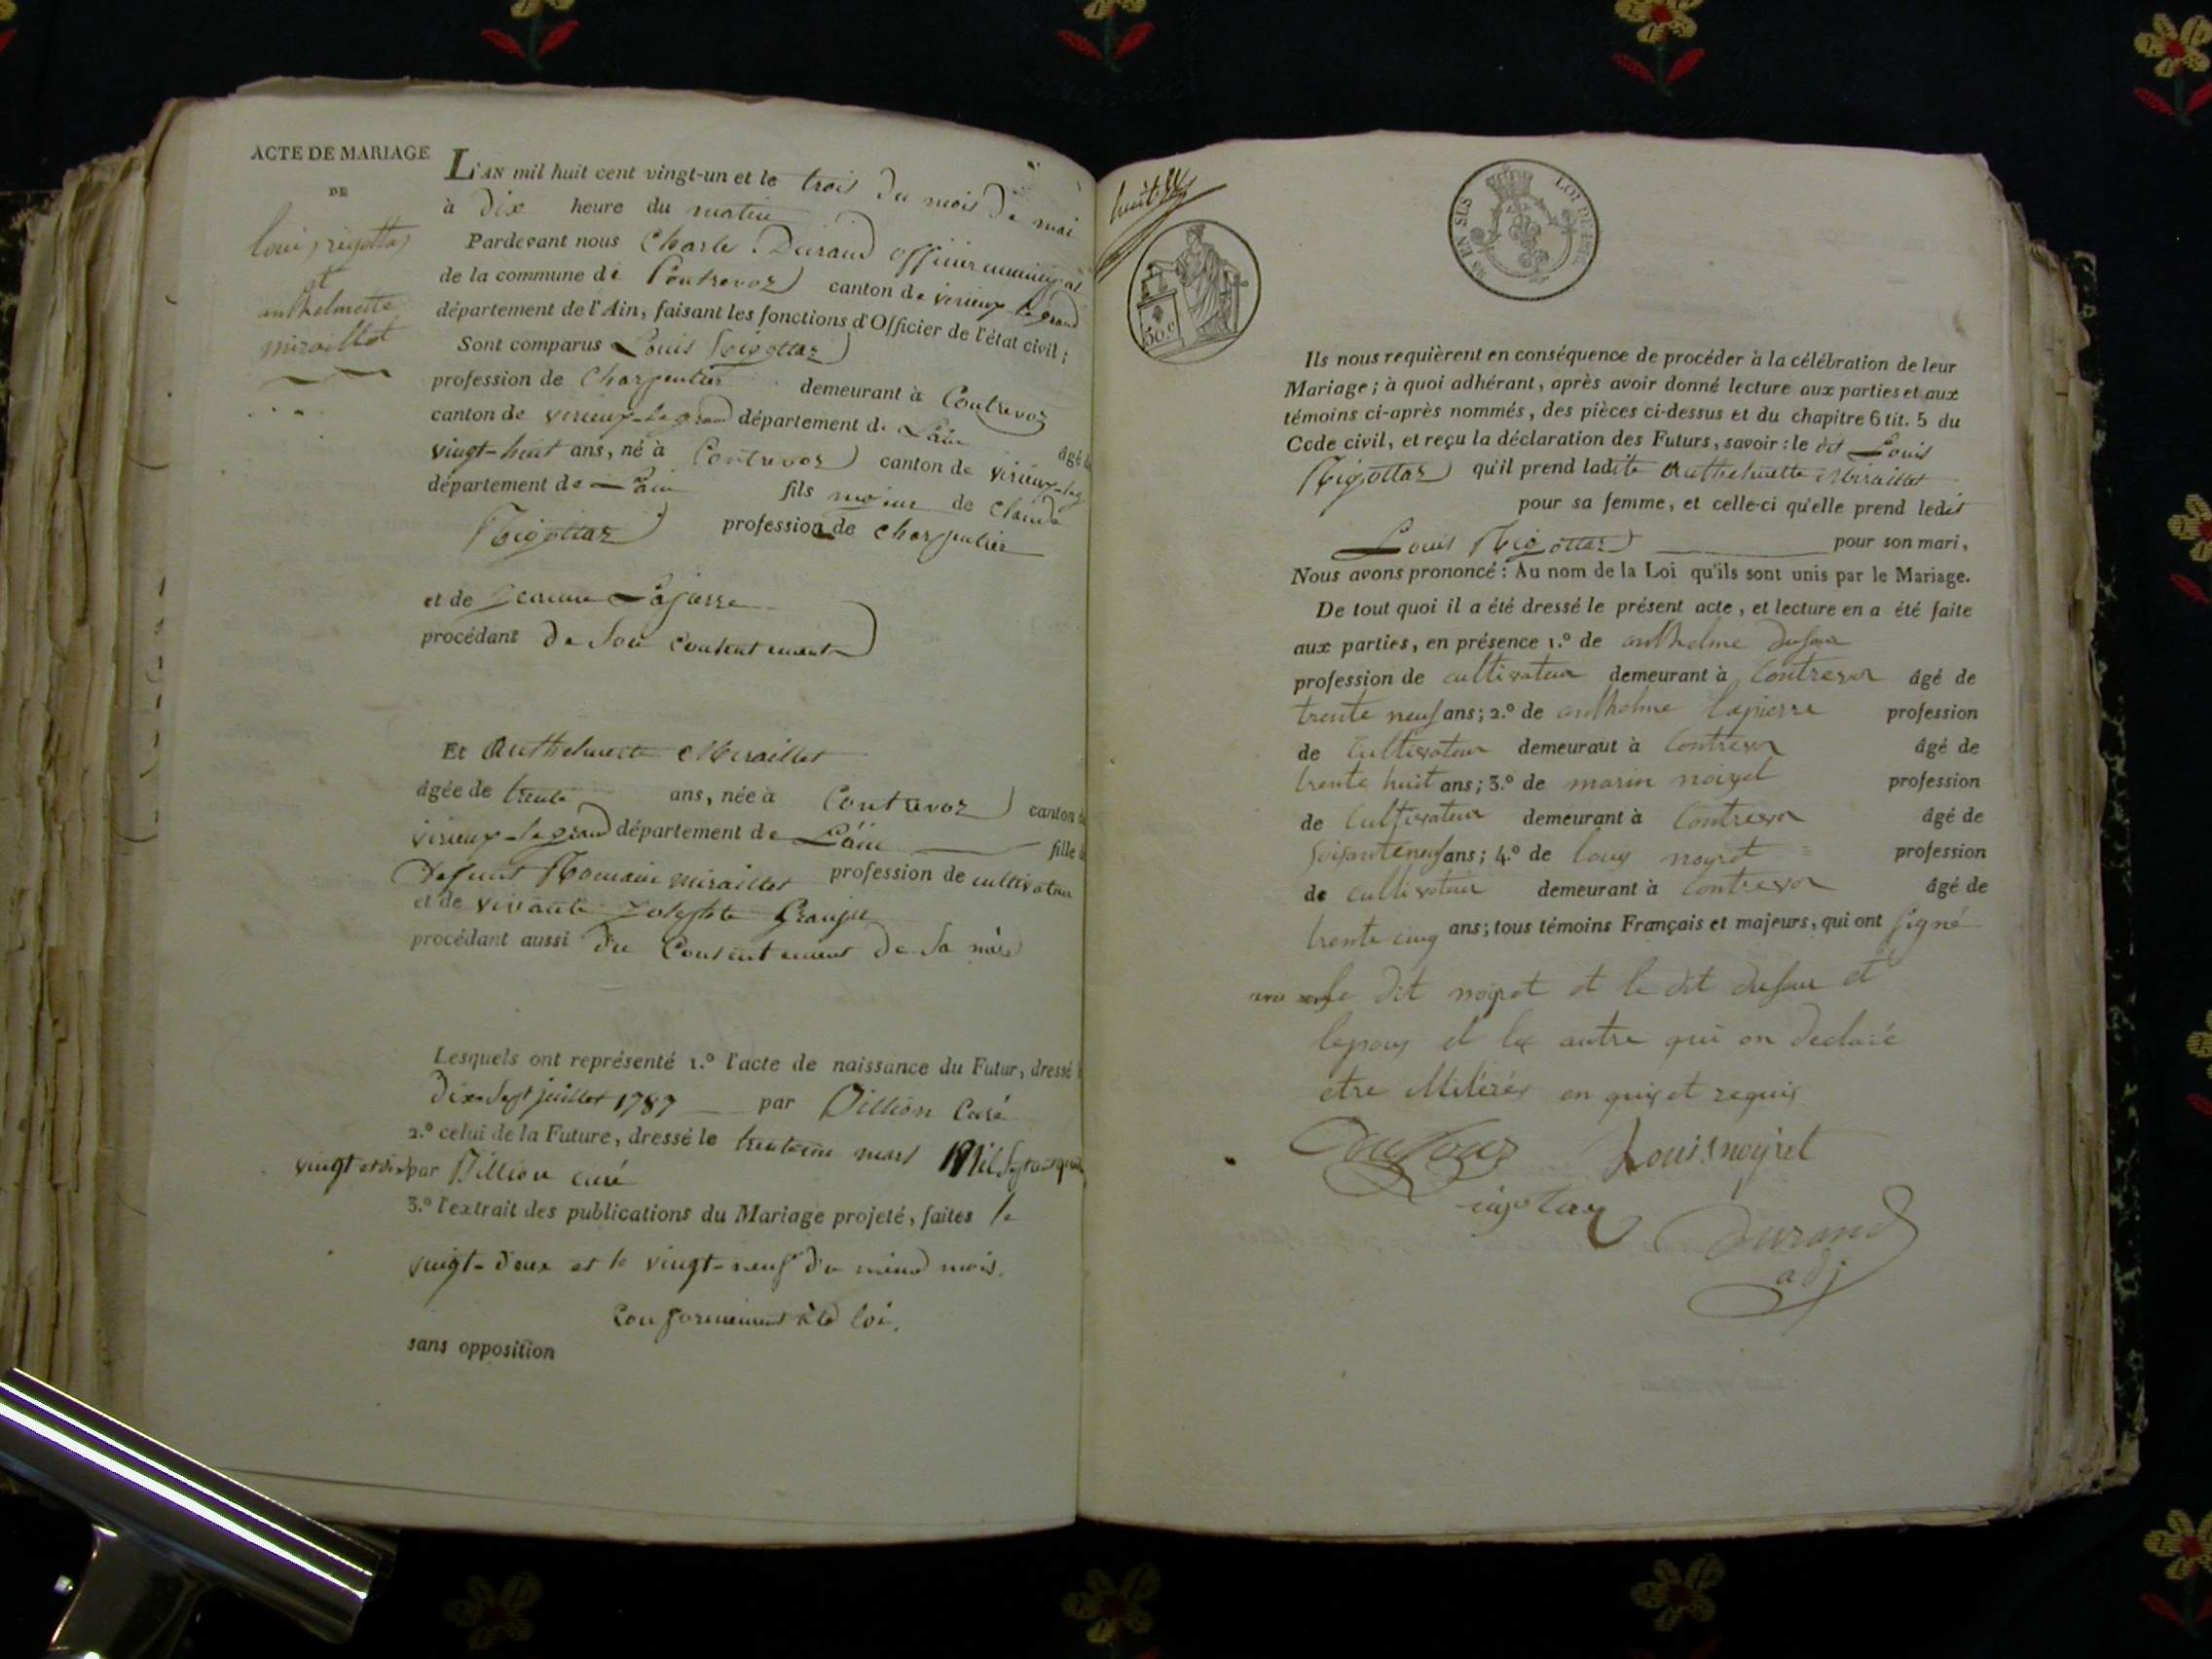 ACTE DE MARIAGE
DE
louis rigottaz
et
anthelmette
miraillet
L'AN mil huit cent vingt-un et le trois du mois de mai
à dix heure du matin
Pardevant nous Charle Durand officier municipal
de la commune de Contrevoz canton de virieux-le grand
département de l'Ain, faisant les fonctions d'Officier de l'état civil;
Sont comparus Louis Rigottaz
profession de Charpentier demeurant à Contrevoz
canton de virieux-le grand département de L'ain âgé de
vingt-huit ans, né à Contrevoz canton de virieux-le g
département de L'ain fils majeur de Claude
Rigottaz profession de Charpentier
et de Jeanne Lapierre
procédant de Son Consentement
Et Anthelmette Miraillet
âgée de trente ans, née à Contrevoz canton de
virieux-le grand département de L'ain fille de
Defunt Romain miraillet profession de cultivateur
et de vivante
procédant aussi du Consentement de Sa mère
Lesquels ont représenté 1.º l'acte de naissance du Futur, dressé le
Dix-Sept juillet 1787 par Dillion Curé
2.º celui de la Future, dressé le mars Mil Sept cent quatre
vingt et dix par Dillion curé
3.º l'extrait des publications du Mariage projeté, faites le
vingt-deux et le vingt-neuf du même mois.
Conformement à la loi.
sans opposition
huit
50. c
EN SUS
LOI DE 1816
Ils nous requièrent en conséquence de procéder à la célébration de leur
Mariage; à quoi adhérant, après avoir donné lecture aux parties et aux
témoins ci-après nommés, des pièces ci-dessus et du chapitre 6 tit. 5 du
Code civil, et reçu la déclaration des Futurs, savoir : le dit Louis
Rigottaz qu'il prend ladite Anthelmette Miraillet
pour sa femme, et celle-ci qu'elle prend ledit
Louis Rigottaz pour son mari,
Nous avons prononcé : Au nom de la Loi qu'ils sont unis par le Mariage.
De tout quoi il a été dressé le présent acte, et lecture en a été faite
aux parties, en présence 1.º de anthelme dufour
profession de cultivateur demeurant à Contrevor âgé de
trente neuf ans; 2.º de anthelme lapierre profession
de Cultivateur demeurant à Contrevor âgé de
trente huit ans; 3.º de marin noiret profession
de Cultivateur demeurant à Contrevor âgé de
soisante neuf ans; 4.º de louis noyret profession
de cultivateur demeurant à Contrevor âgé de
trente cinq ans; tous témoins Français et majeurs, qui ont signé
le dit noyret et le dit dufour et
lepoux et les autre qui on declaré
etre illiterés en quis et requis
Dufour Louis noyret
rigotaz
Durand
adj